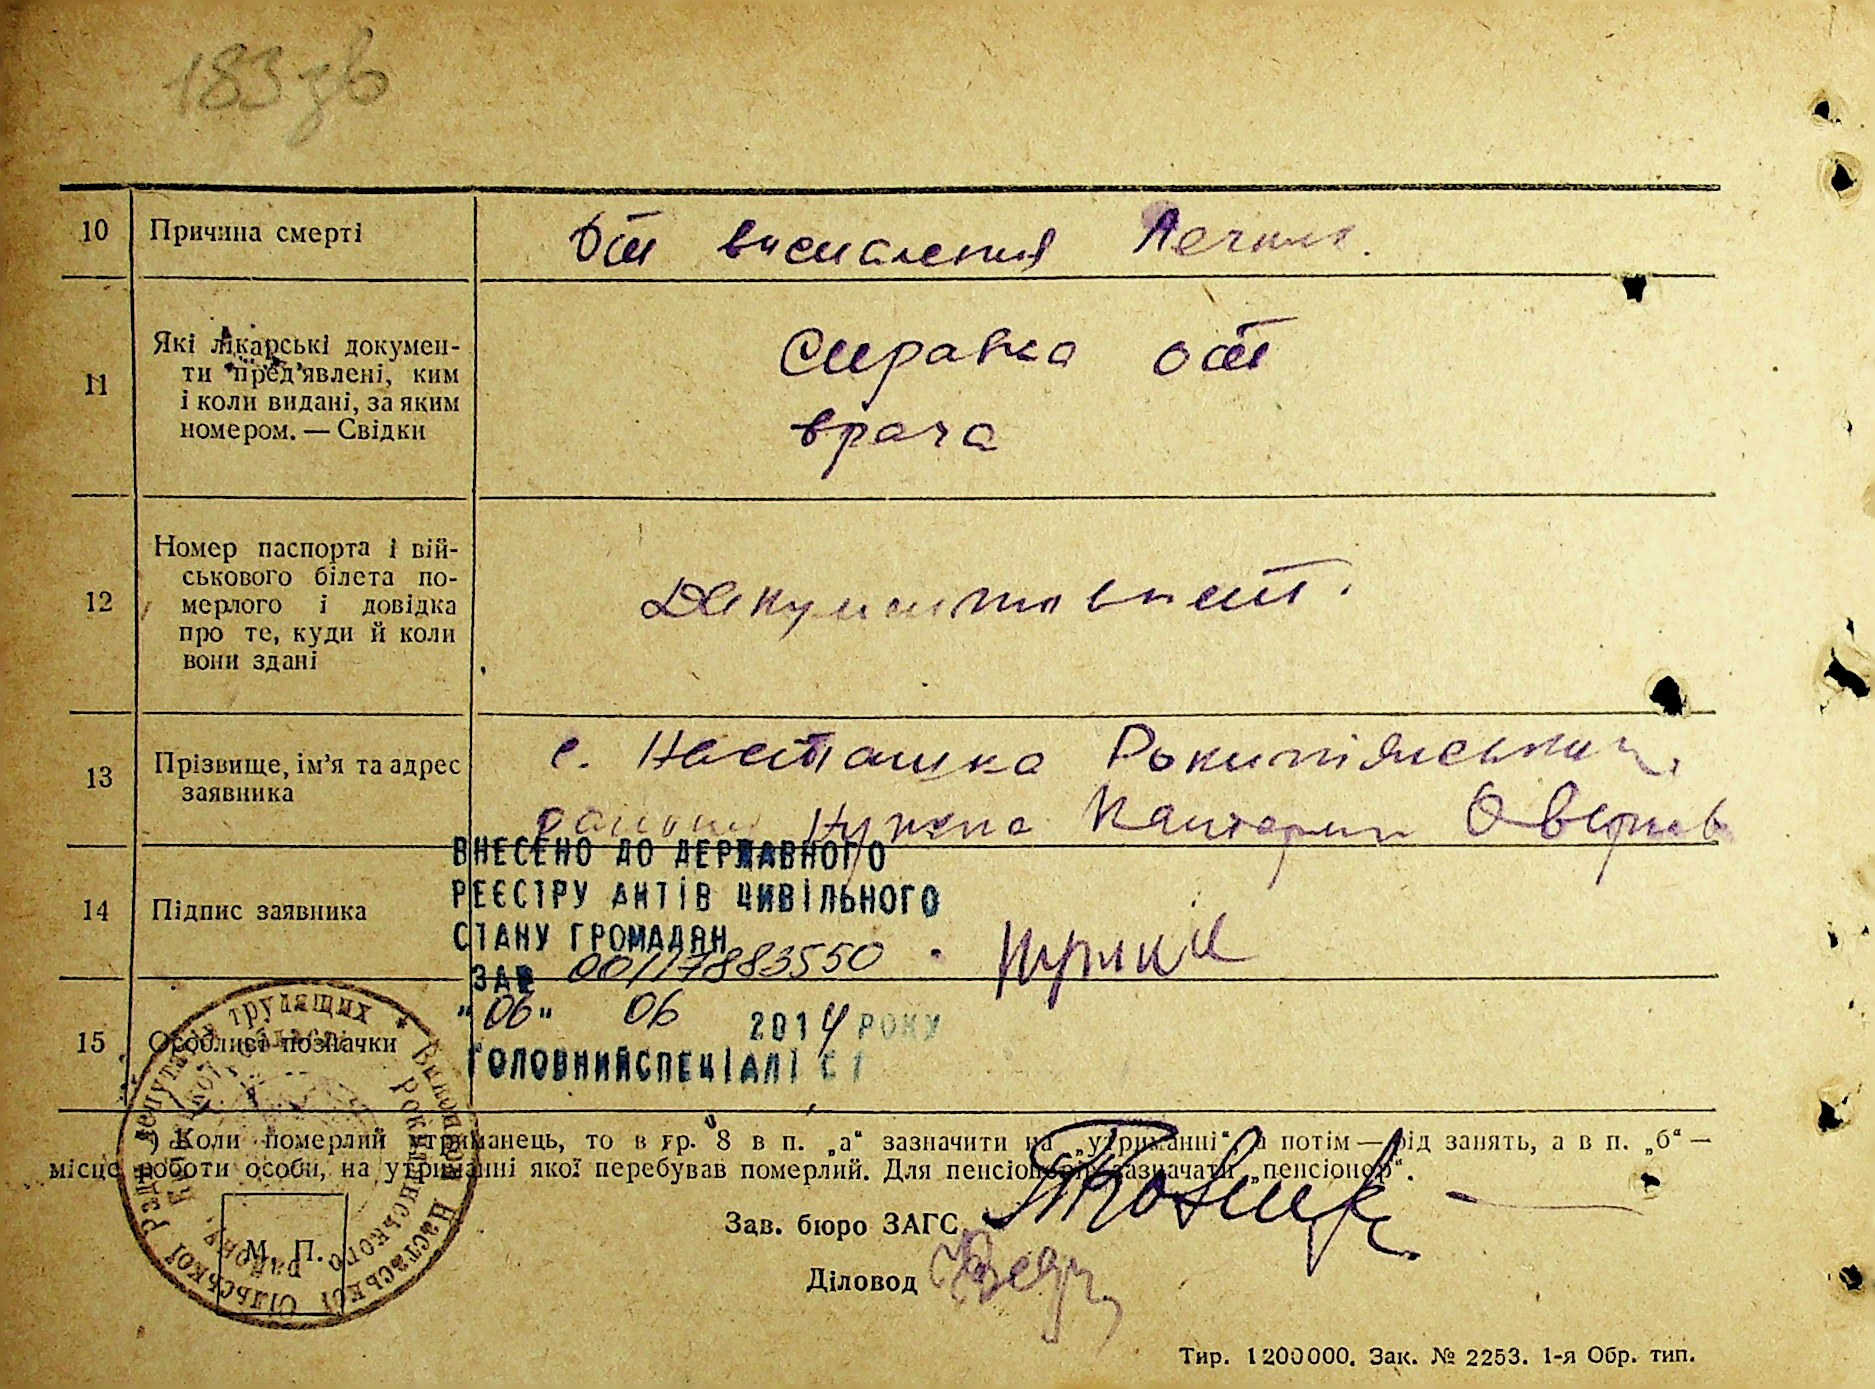 183 зв
10 Причина смерті
От виспалення Печини.
11 Які лікарські докумен-
ти пред'явлені, ким
і коли видані, за яким
номером. — Свідки
Справка от
врача
12 Номер паспорта і вій-
ськового білета по-
мерлого і довідка
про те, куди й коли
вони здані
13 Прізвище, ім'я та адрес
заявника
с. Насташка Рокитянський
району
14 Підпис заявника
ВНЕСЕНО ДО ДЕРЖАВНОГО
РЕЄСТРУ АКТІВ ЦИВІЛЬНОГО
СТАНУ ГРОМАДЯН
ЗА № 00117883550
"06" 06 2014 РОКУ
ГОЛОВНИЙ СПЕЦІАЛІСТ
15 Особливі позначки
) Коли померлий утриманець, то в гр. 8 в п. „а“ зазначити на „утриманні“, а потім — рід занять, а в п. „б“ —
місце роботи особи, на утриманні якої перебував померлий. Для пенсіонерів зазначати „пенсіонер“.
Зав. бюро ЗАГС
Діловод
М. П.
Виконком Насташської Сільської Ради депутатів трудящих
Рокитянського району Київської області
Тир. 1200000. Зак. № 2253. 1-я Обр. тип.